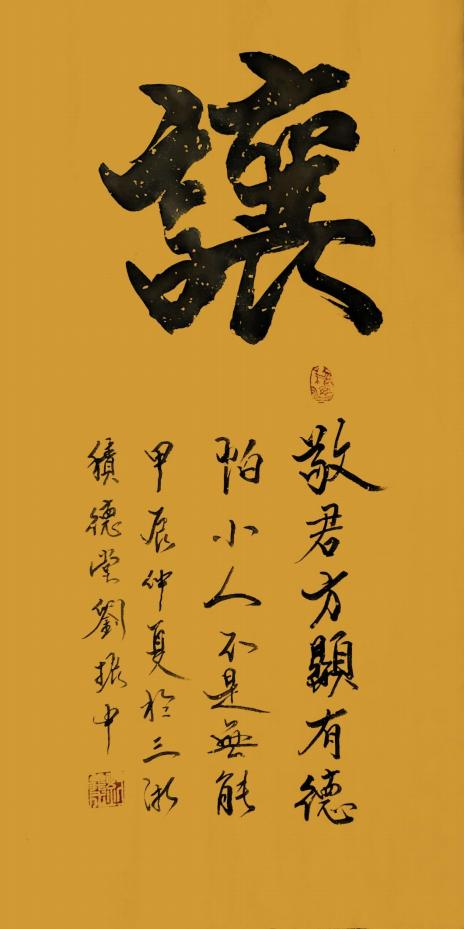 讓
敬君方顯有德
怕小人不是無能
甲辰仲夏於三浙
積德堂劉振中